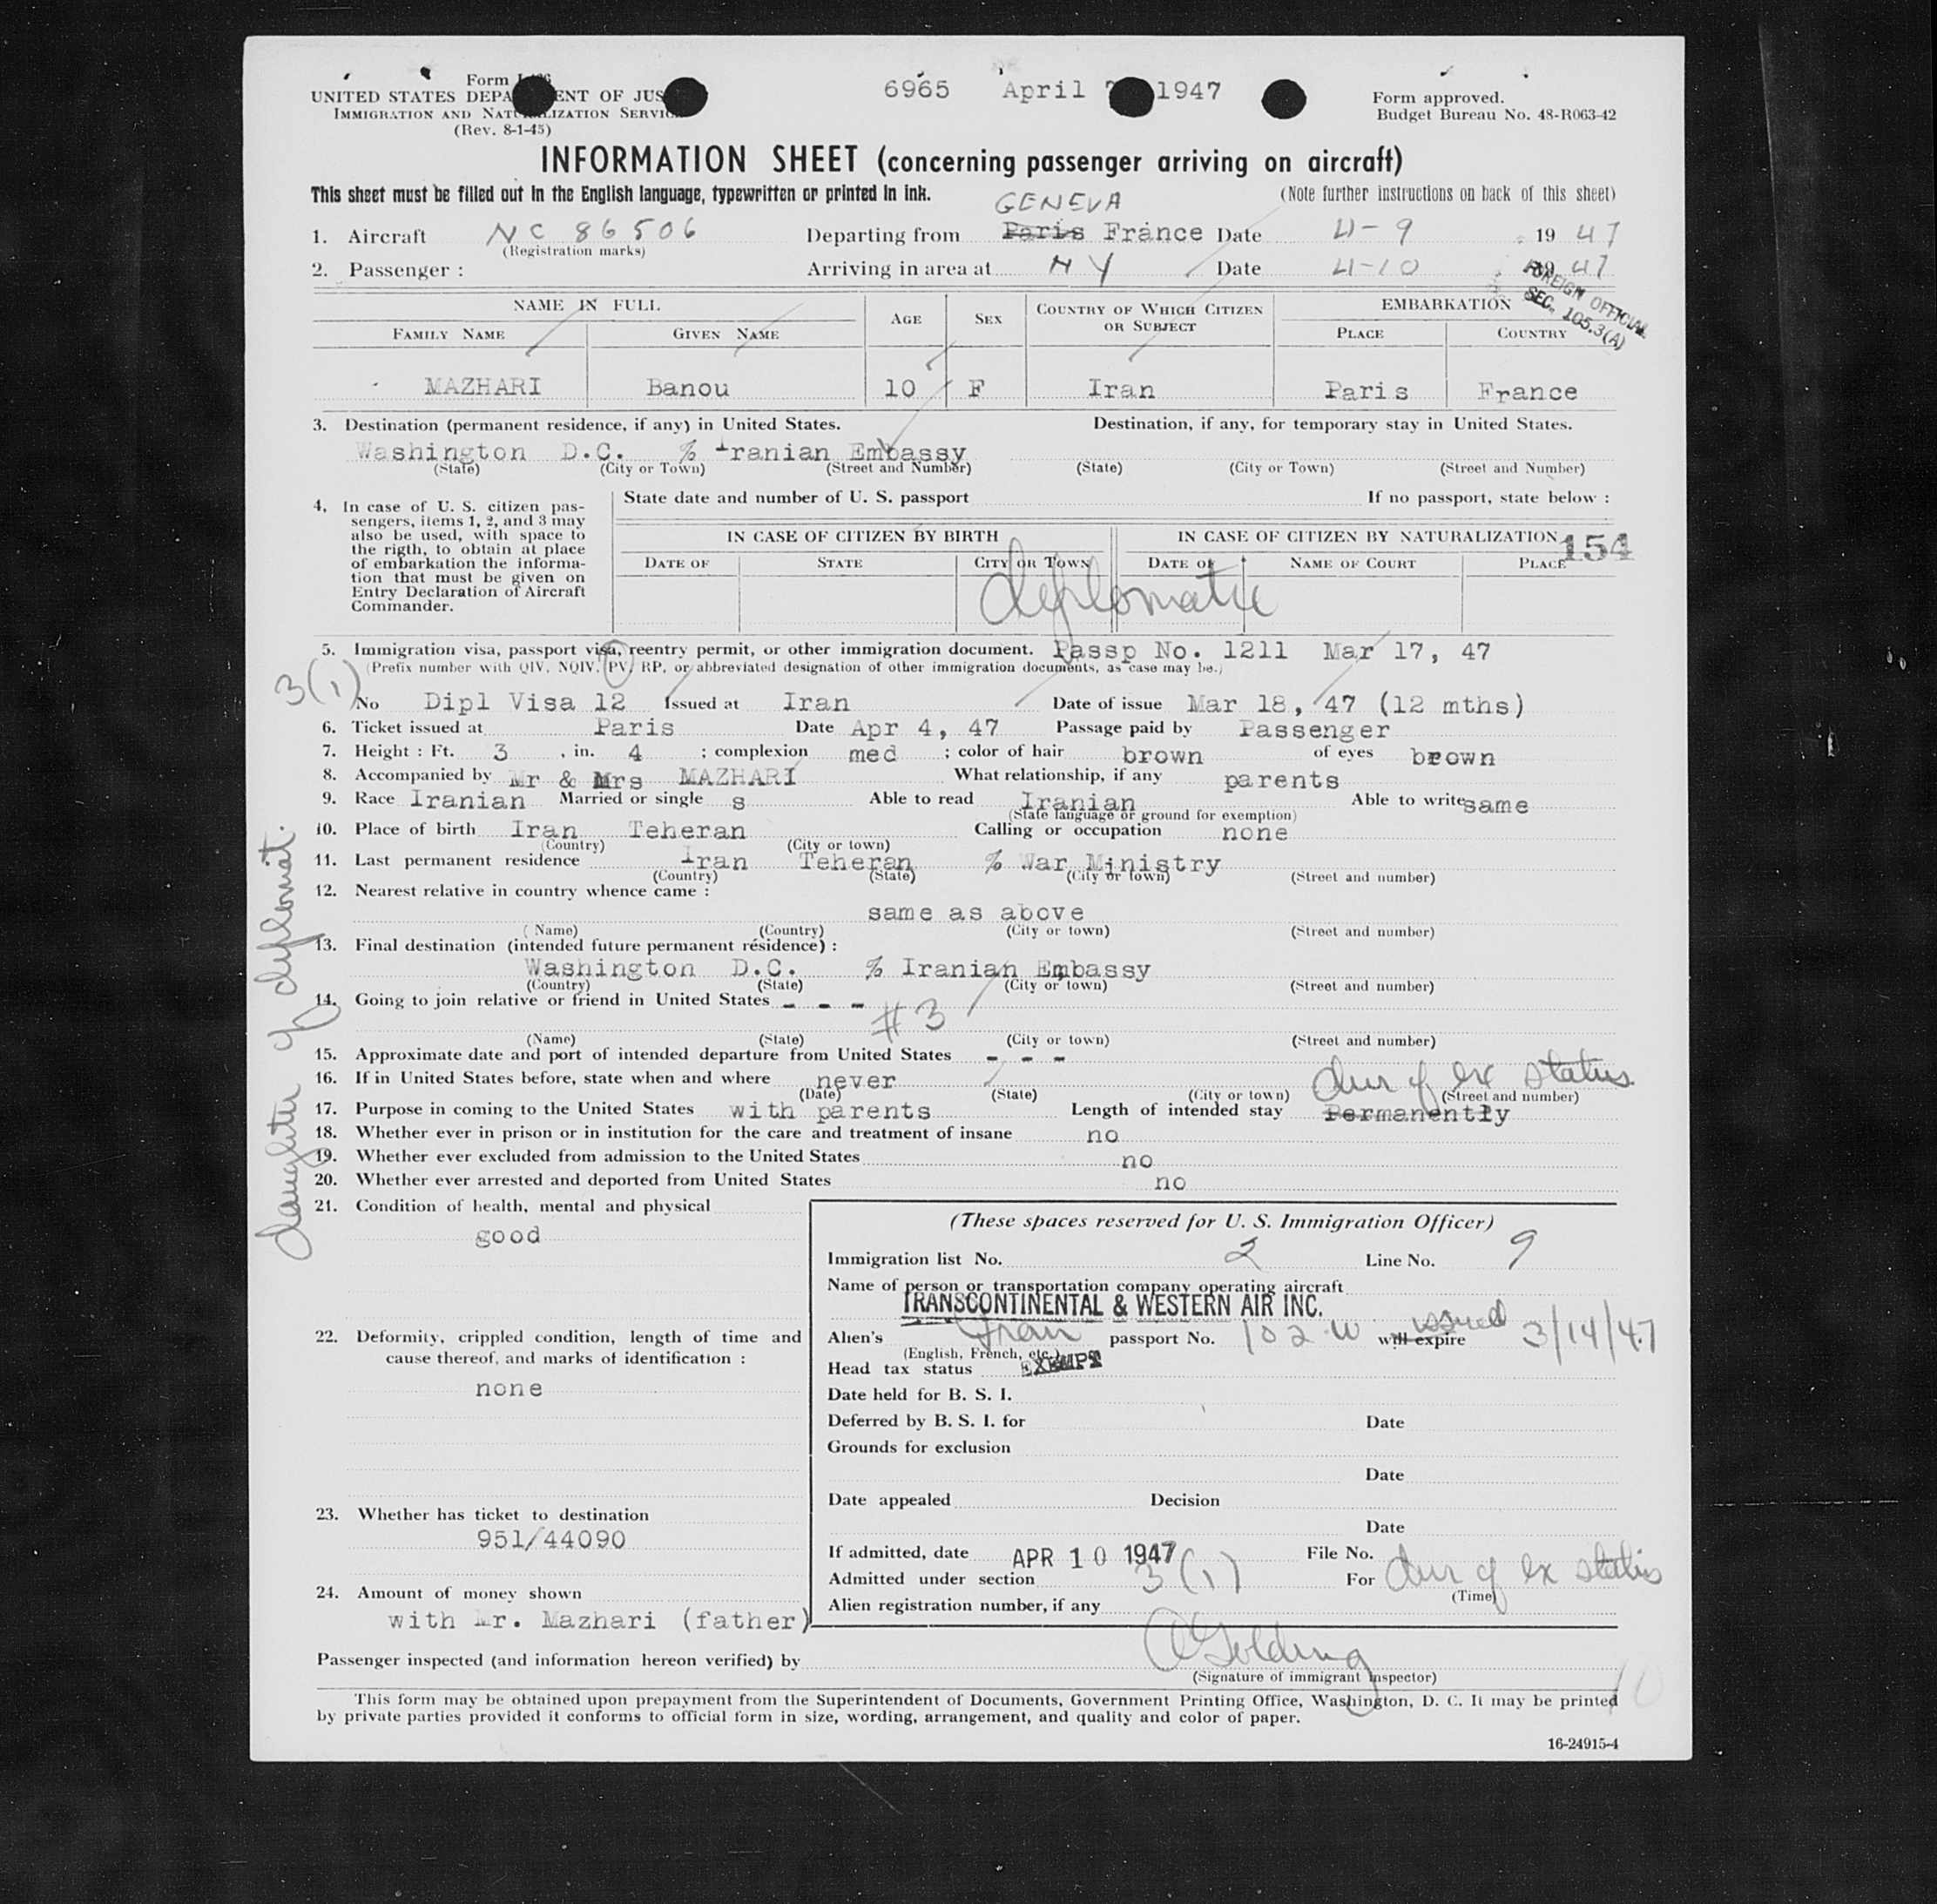 Form
6965 April 1947
UNITED STATES DEPA ENT OF JUS
IMMIGRATION AND NATURALIZATION SERVICE
(Rev. 8-1-45)
Form approved.
Budget Bureau No. 48-R063-42
INFORMATION SHEET (concerning passenger arriving on aircraft)
This sheet must be filled out in the English language, typewritten or printed in ink. (Note further instructions on back of this sheet)
GENEVA
1. Aircraft NC 86506 Departing from Paris France Date 4-9 19 47
(Registration marks)
2. Passenger : Arriving in area at NY Date 4-10 19 47
FOREIGN OFFICIAL
SEC. 105.3(A)
NAME IN FULL AGE SEX COUNTRY OF WHICH CITIZEN OR SUBJECT EMBARKATION
FAMILY NAME GIVEN NAME PLACE COUNTRY
MAZHARI Banou 10 F Iran Paris France
3. Destination (permanent residence, if any) in United States. Destination, if any, for temporary stay in United States.
Washington D.C. % Iranian Embassy
(State) (City or Town) (Street and Number) (State) (City or Town) (Street and Number)
4. In case of U. S. citizen pas-
sengers, items 1, 2, and 3 may
also be used, with space to
the rigth, to obtain at place
of embarkation the informa-
tion that must be given on
Entry Declaration of Aircraft
Commander.
State date and number of U. S. passport If no passport, state below :
IN CASE OF CITIZEN BY BIRTH IN CASE OF CITIZEN BY NATURALIZATION 154
DATE OF STATE CITY OR TOWN DATE OF NAME OF COURT PLACE
diplomatic
5. Immigration visa, passport visa, reentry permit, or other immigration document. Passp No. 1211 Mar 17, 47
(Prefix number with QIV, NQIV, PV, RP, or abbreviated designation of other immigration documents, as case may be.)
3(1)
No Dipl Visa 12 Issued at Iran Date of issue Mar 18, 47 (12 mths)
6. Ticket issued at Paris Date Apr 4, 47 Passage paid by Passenger
7. Height : Ft. 3 , in. 4 ; complexion med ; color of hair brown of eyes brown
8. Accompanied by Mr & Mrs MAZHARI What relationship, if any parents
9. Race Iranian Married or single s Able to read Iranian Able to write same
(State language or ground for exemption)
10. Place of birth Iran Teheran Calling or occupation none
(Country) (City or town)
11. Last permanent residence Iran Teheran % War Ministry
(Country) (State) (City or town) (Street and number)
12. Nearest relative in country whence came :
same as above
(Name) (Country) (City or town) (Street and number)
13. Final destination (intended future permanent résidence) :
Washington D.C. % Iranian Embassy
(Country) (State) (City or town) (Street and number)
14. Going to join relative or friend in United States - - -
#3
(Name) (State) (City or town) (Street and number)
15. Approximate date and port of intended departure from United States - - -
16. If in United States before, state when and where never dur of ex status
(Date) (State) (City or town) (Street and number)
17. Purpose in coming to the United States with parents Length of intended stay Permanently
18. Whether ever in prison or in institution for the care and treatment of insane no
19. Whether ever excluded from admission to the United States no
20. Whether ever arrested and deported from United States no
daughter of diplomat.
21. Condition of health, mental and physical
good
22. Deformity, crippled condition, length of time and
cause thereof, and marks of identification :
none
23. Whether has ticket to destination
951/44090
24. Amount of money shown
with Mr. Mazhari (father)
(These spaces reserved for U. S. Immigration Officer)
Immigration list No. 2 Line No. 9
Name of person or transportation company operating aircraft
TRANSCONTINENTAL & WESTERN AIR INC.
Alien's Iran passport No. 102 W will expire issued 3/14/47
(English, French, etc.)
Head tax status EXEMPT
Date held for B. S. I.
Deferred by B. S. I. for Date
Grounds for exclusion
Date
Date appealed Decision
Date
If admitted, date APR 10 1947 File No.
Admitted under section 3(1) For dur of ex status
(Time)
Alien registration number, if any
Passenger inspected (and information hereon verified) by Golding
(Signature of immigrant inspector)
This form may be obtained upon prepayment from the Superintendent of Documents, Government Printing Office, Washington, D. C. It may be printed
by private parties provided it conforms to official form in size, wording, arrangement, and quality and color of paper.
16-24915-4